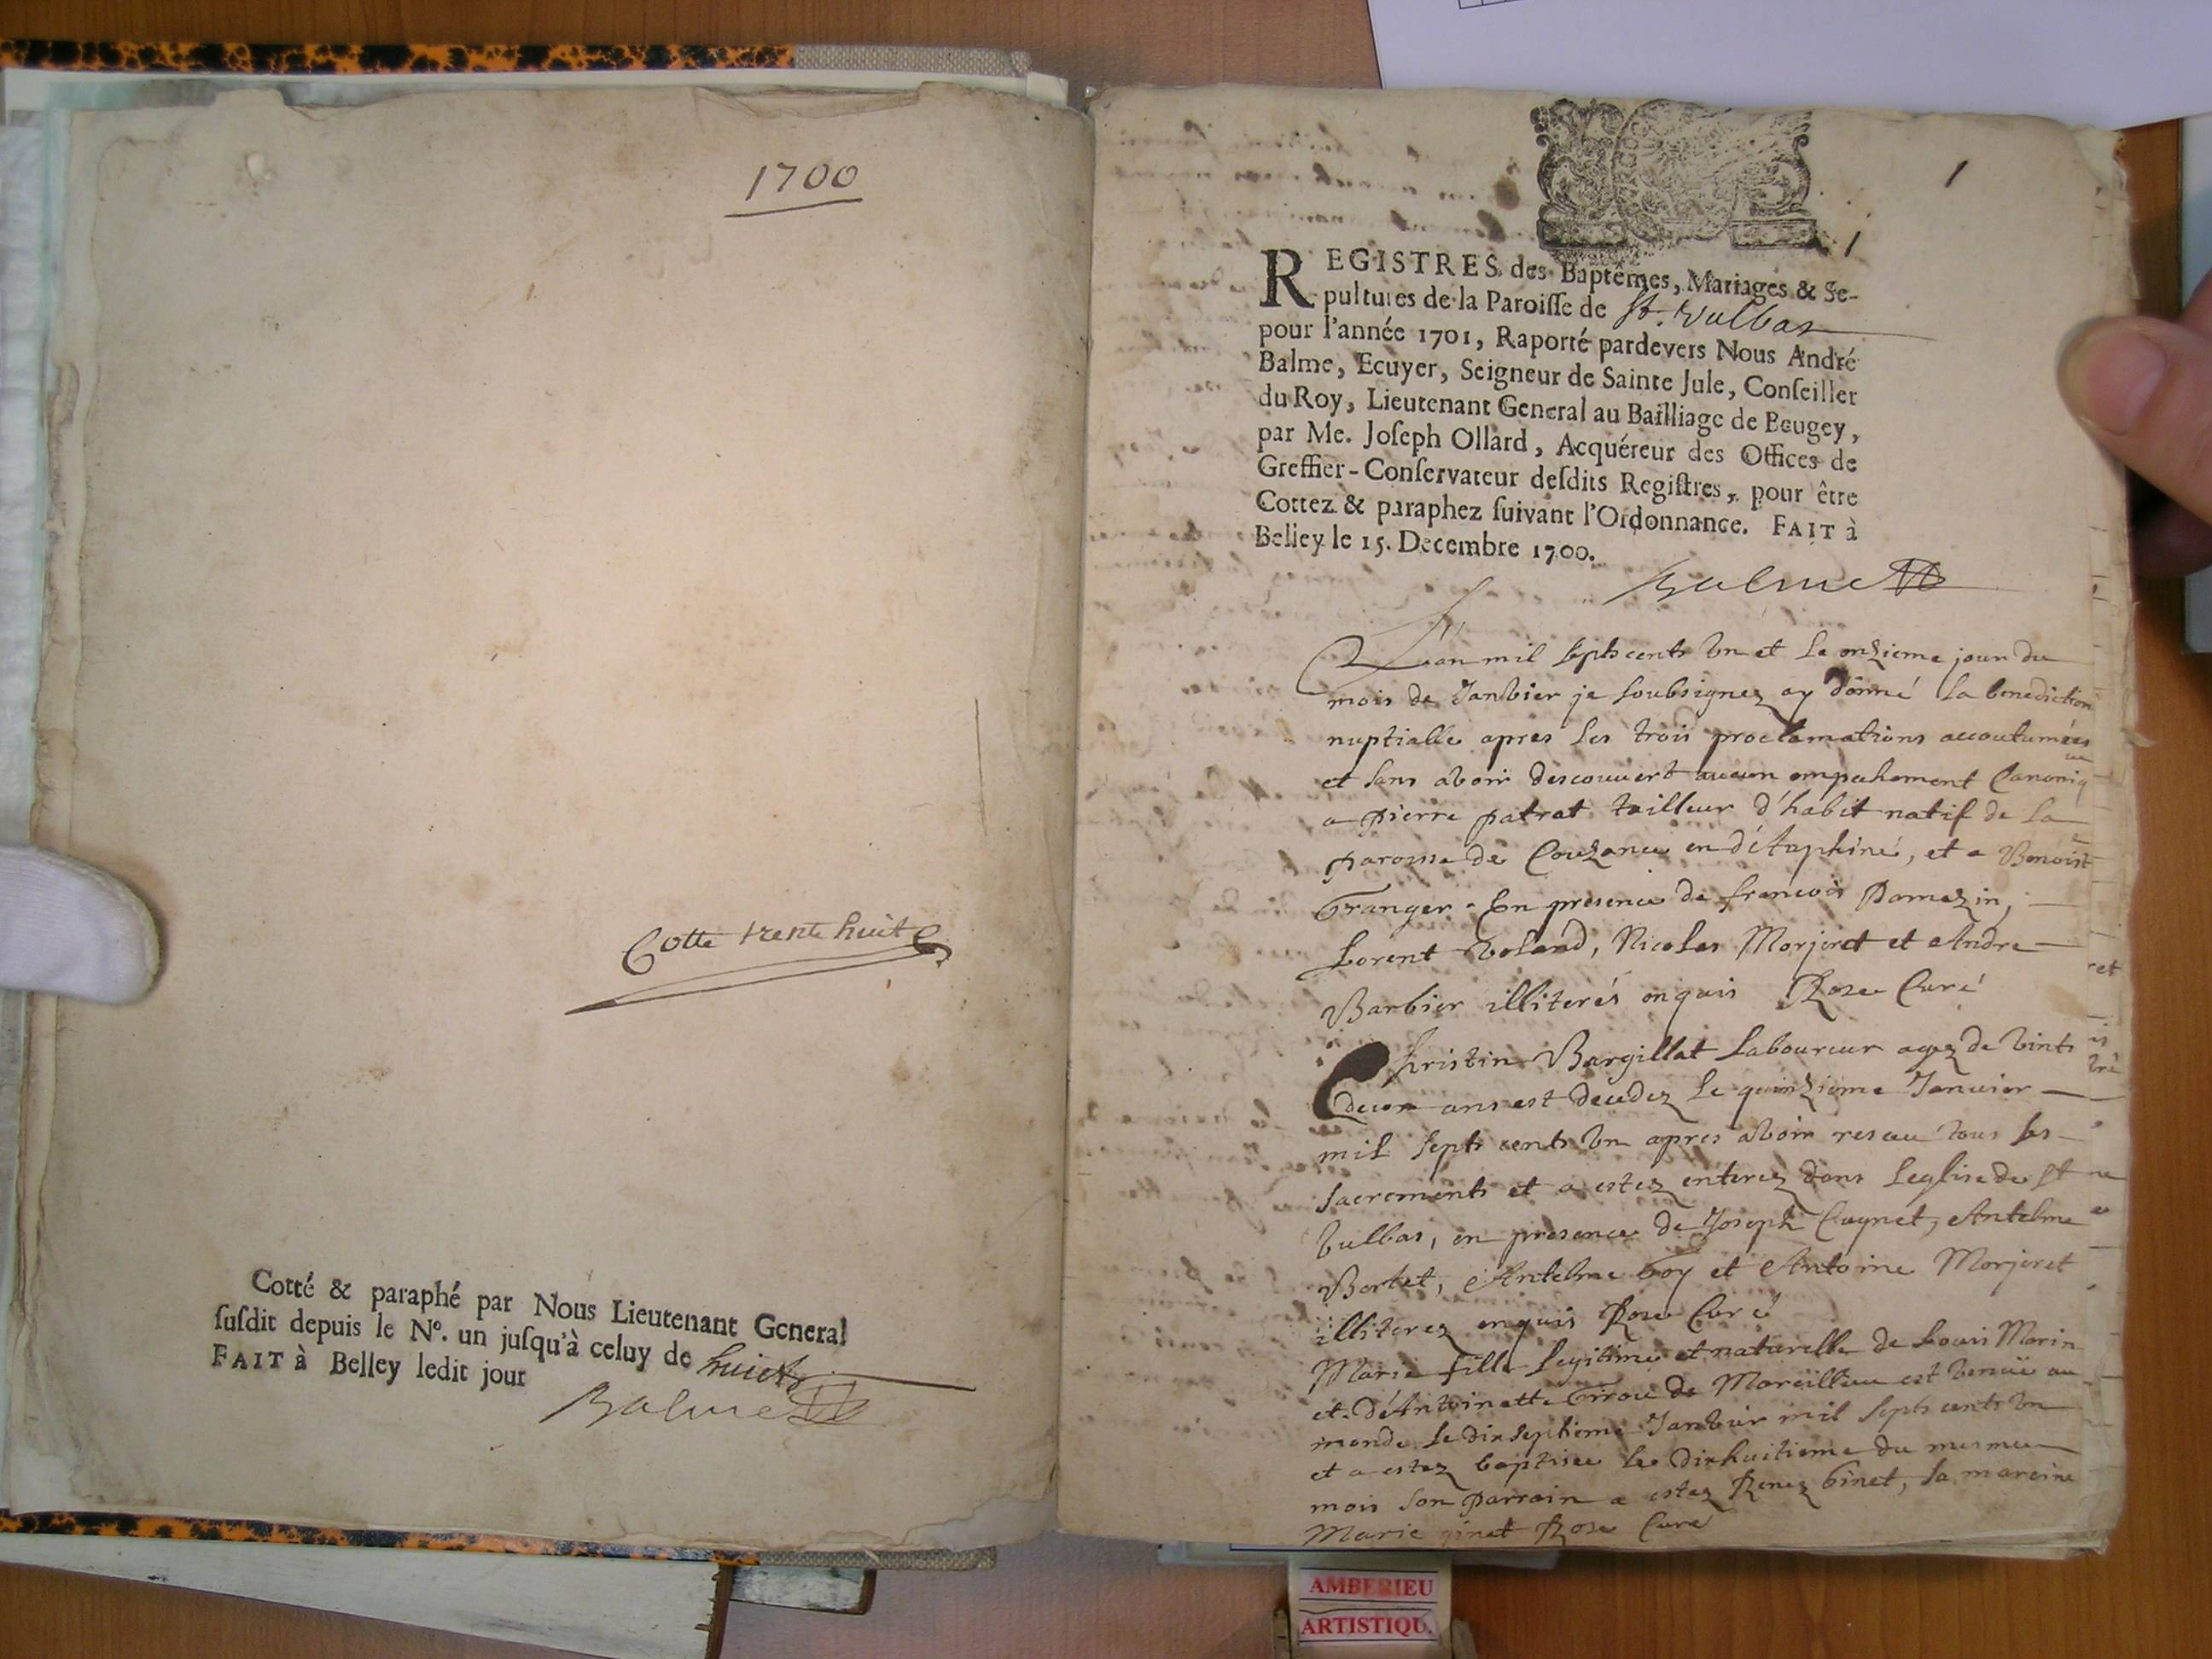 1700
Cotte trente huit
Cotté & paraphé par Nous Lieutenant General
ſuſdit depuis le Nº. un juſqu'à celuy de huict
FAIT à Belley ledit jour
Balme
1
1
REGISTRES des Baptêmes, Mariages & Se-
pultures de la Paroiſſe de St. Vulbas
pour l'année 1701, Raporté pardevers Nous André
Balme, Ecuyer, Seigneur de Sainte Jule, Conſeiller
du Roy, Lieutenant General au Bailliage de Beugey,
par Me. Joſeph Ollard, Acquéreur des Offices de
Greffier-Conſervateur deſdits Regiſtres, pour être
Cottez & paraphez ſuivant l'Ordonnance. FAIT à
Belley le 15. Decembre 1700.
Balme
Lan mil septs cents Un et le onzieme jour du
mois de Janvier je soubsignez ay donné la benediction
nuptialle apres les trois proclamations accoutumées
et sans avoir descouvert aucun empechement Canoniq
a pierre patrat tailleur d'habit natif de la
paroisse de en et a Benoist
Granger. En presence de francois Pomezin,
Lorent Voland, Nicolas Morjeret et Andre
Barbier illiterés enquis Roze Curé
Christin Bargillat laboureur agez de vints
deux ans est decedez le quinzieme Janvier
mil septs cents Un apres avoir resceu tous les
sacrements et a estez enterez dans leglise de St
vulbas, en presence de Joseph Cuynet, Antelme
Bertet, Antelme Goy et Antoine Morjeret
illiterez enquis Roze Curé
Marie fille legitime et naturelle de Louis Morin
et d'Antoinette Girou de Marcillieu est venüe au
monde le dixseptieme Janvier mil septs cents Un
et a estez baptisee le dixhuitieme du mesme
mois son parrain a estez Renez Ginet, la mareine
Marie ginet Roze Curé
AMBERIEU
ARTISTIQU